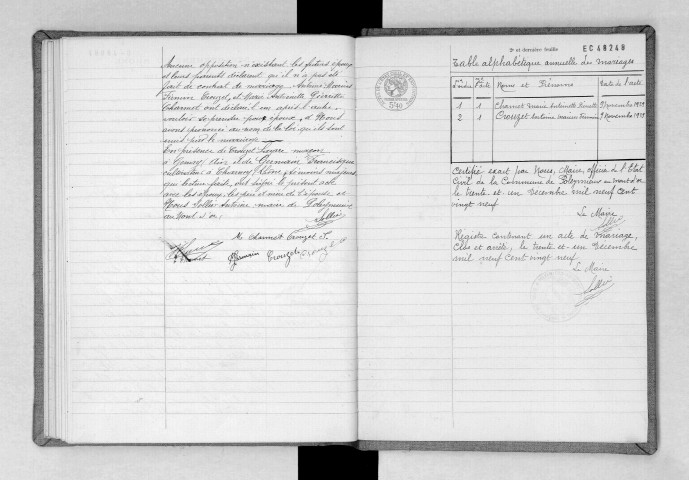 Aucune opposition n'existant les futurs époux
et leurs parents déclarent qu'il n'a pas été
fait de contrat de mariage. Antoine Marius
Firmin Crouzet, et Marie Antoinette
Charnot ont déclaré l'un après l'autre
vouloir se prendre pour époux, et Nous
avons prononcé au nom de la loi qu'ils sont
unis par le mariage.
En présence de Crouzet maçon
à et de Germain
cultivateur à témoins majeurs
qui lecture faite, ont signé le présent acte
avec les époux, les père et mère de l'épouse et
Nous Sollier Antoine maire de Poleymieux
au Mont d'or.
Sollier
M. Charnot Crouzet F.
Germain Crouzet
2e et dernière feuille
EC48248
Table alphabétique annuelle des mariages
Nos d'ordre Nos de l'acte Noms et Prénoms Date de l'acte
1 1 Charnot Marie Antoinette 9 novembre 1929
2 1 Crouzet Antoine Marius Firmin 9 Novembre 1929
Certifié exact par Nous, Maire, officier de l'Etat
Civil de la Commune de Poleymieux au Mont d'or
le trente et un Décembre mil neuf cent
vingt neuf
Le Maire
Sollier
Registre contenant un acte de mariage,
Clos et arrêté, le trente et un Décembre
mil neuf Cent vingt neuf.
Le Maire
Sollier